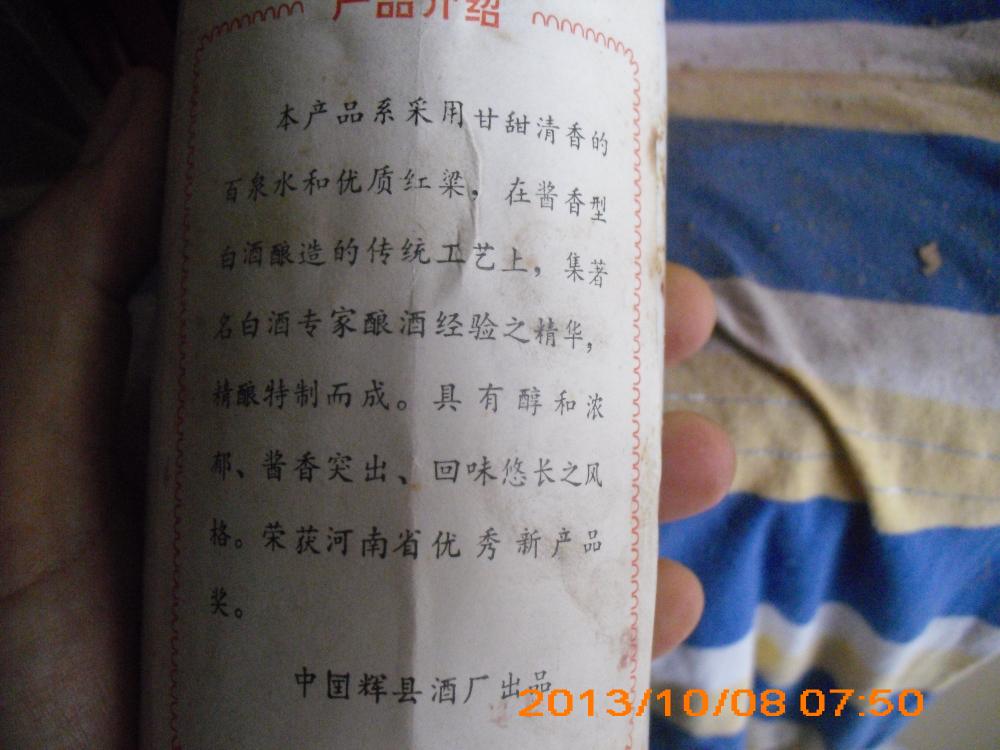 产品介绍
本产品系采用甘甜清香的
百泉水和优质红粱，在酱香型
白酒酿造的传统工艺上，集著
名白酒专家酿酒经验之精华，
精酿特制而成。具有醇和浓
郁、酱香突出、回味悠长之风
格。荣获河南省优秀新产品
奖。
中国辉县酒厂出品
2013/10/08 07:50